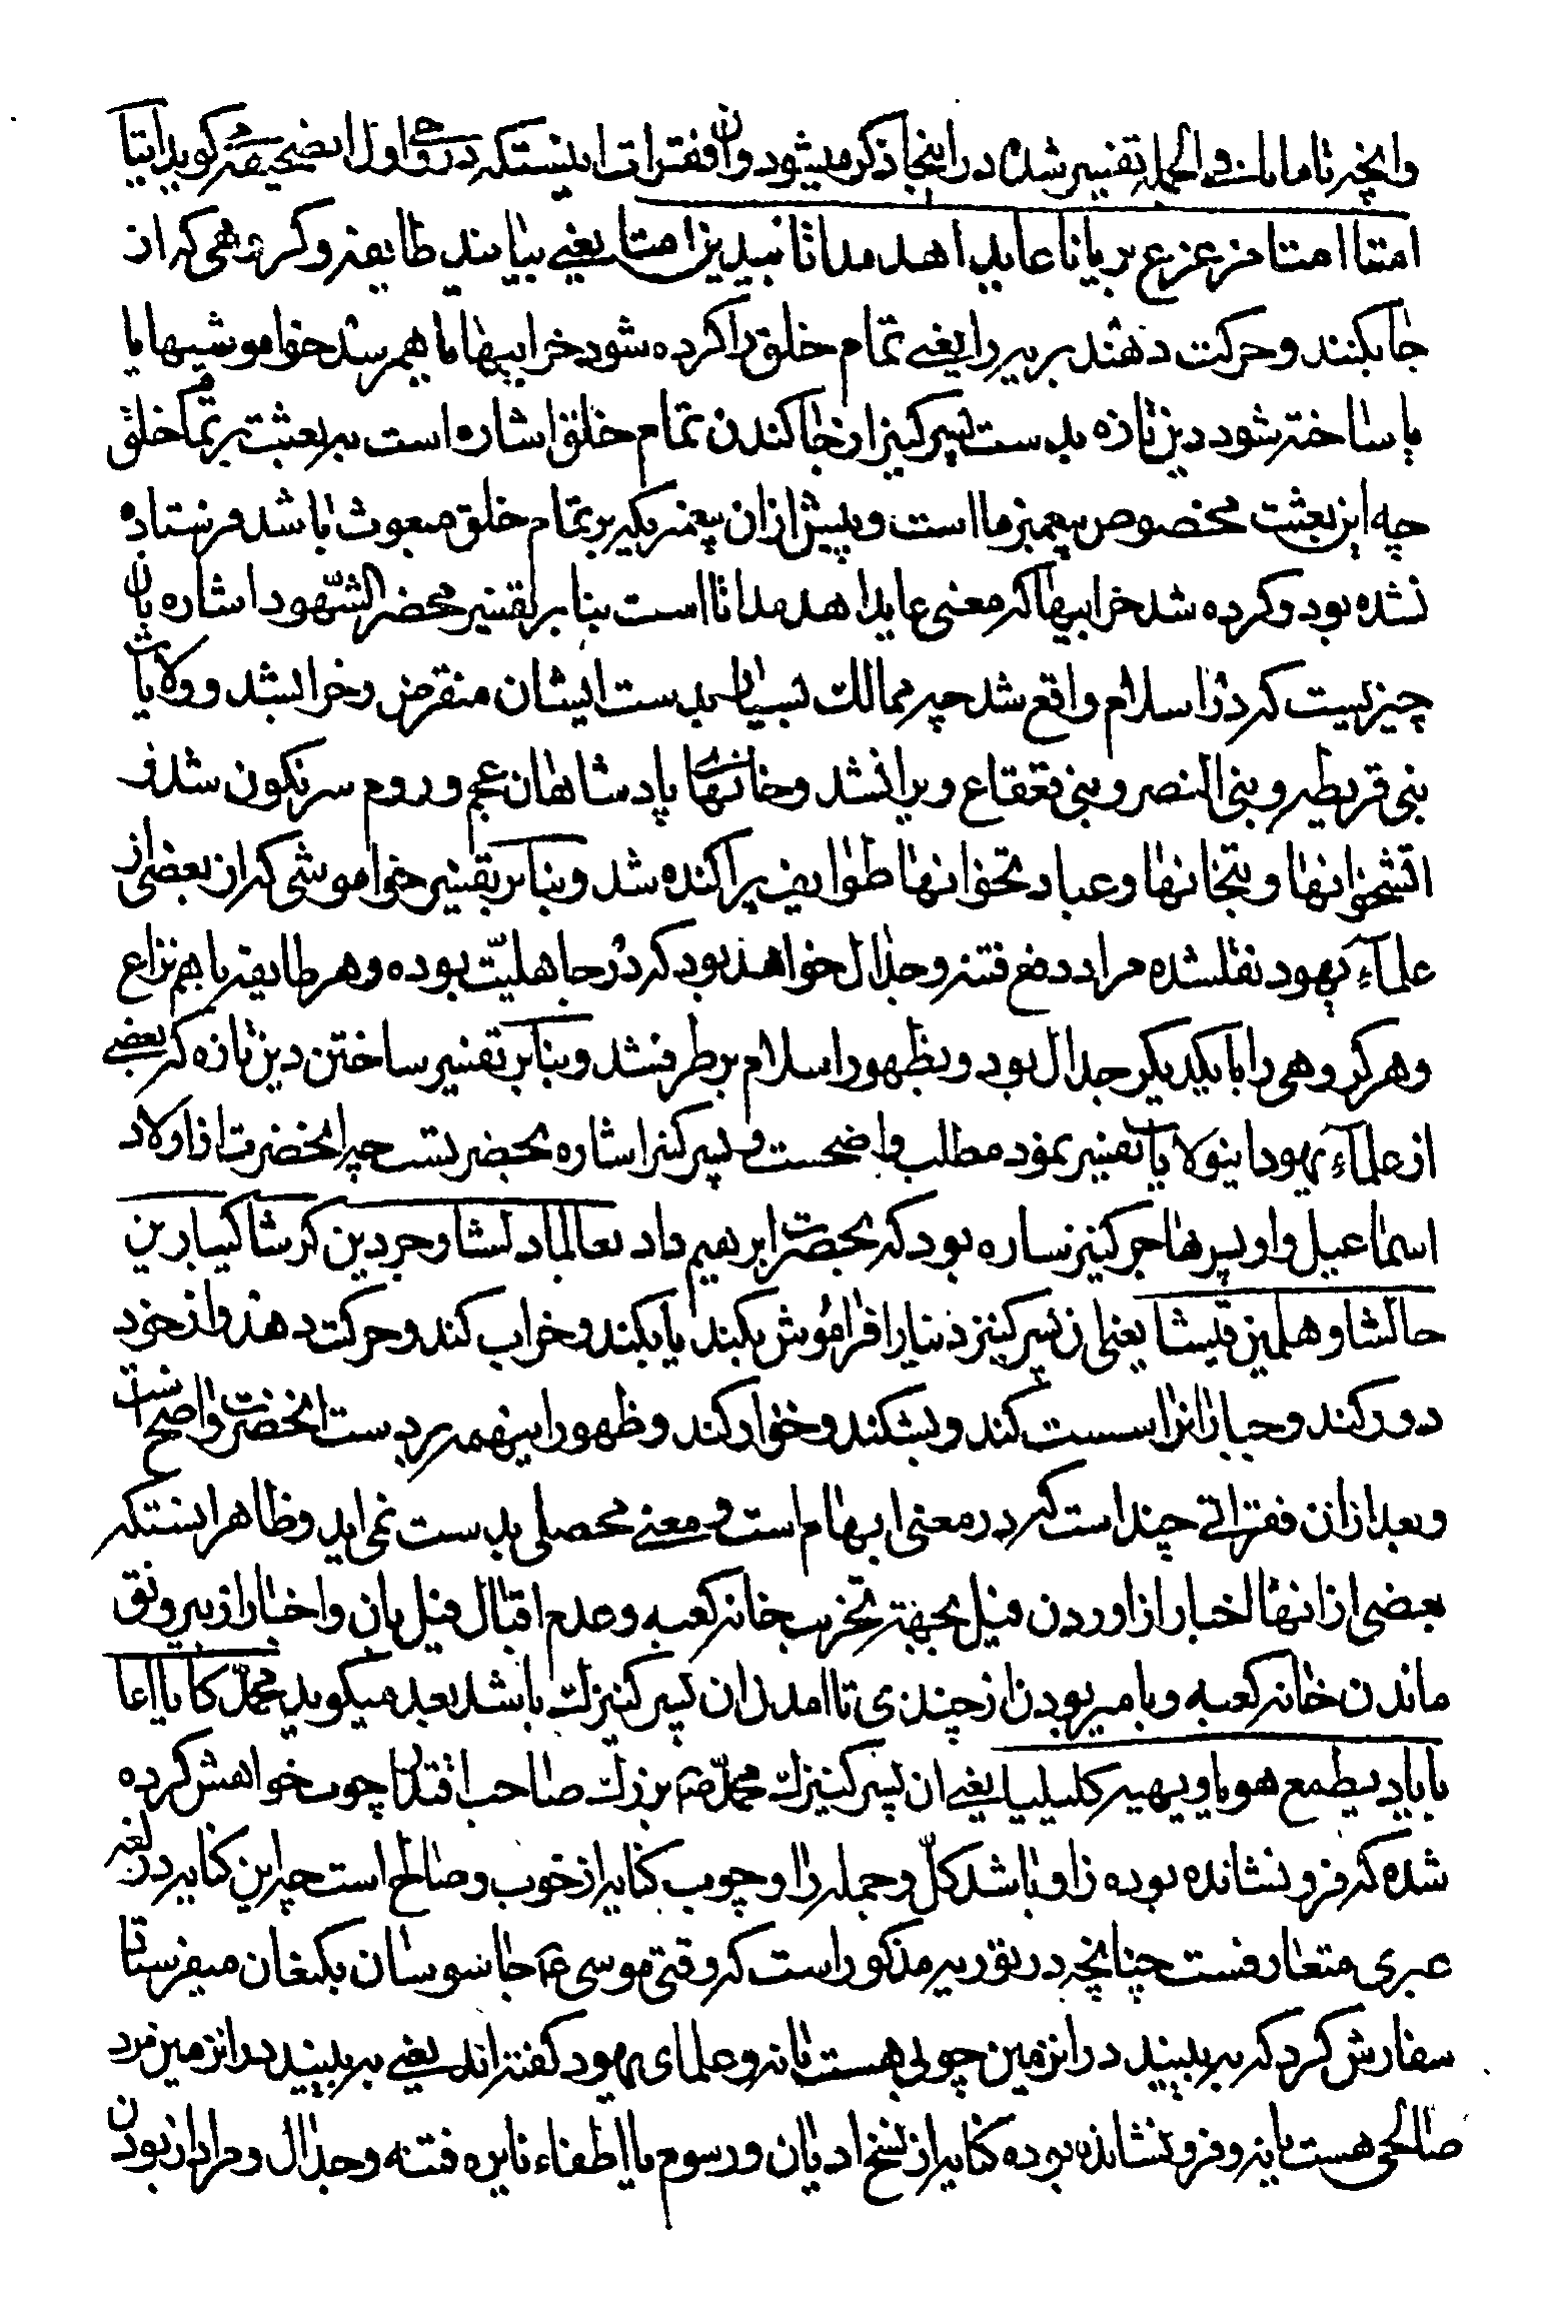 وانچه تا ما بان فی الجمله تفسیر شده در اینجا ذکر میشود وان فقرات اینستکه در وحی اول اینصحیفه کوید اتیا
امتا امتا مزعزع بریانا عابید اهد مداتا بیدین امتا یعنی بیایند طایفه وکروهی که از
جا بکنند وحرکت دهند بریه را یعنی تمام خلق را کرده شود خرابیها با هم رسد خواموشیها یا
یا ساخته شود دین تازه بدست پسر کنیز از جا کندن تمام خلق اشاره است به بعثت بر تمام خلق
چه این بعثت مخصوص پیغمبر ما است وپیش از ان پیغمبر دیکر بر تمام خلق مبعوث باشد فرستاده
نشده بود وکرده شد خرابیها که معنی عابد اهد مداتا است بنا بر تفسیر محضر الشهود اشاره بان
چیزیست که در اسلام واقع شد چه ممالک بسیار بدست ایشان منقرض وخراب شد وولایات
بنی قریظه وبنی النضر وبنی قعقاع ویرانشد وخانهای پادشاهان عجم وروم سرنکون شد و
اتشخوانها وبتخانها وعبادتخوانها طوایف پراکنده شد وبنابر تفسیر خواموشی که از بعضی از
علماء یهود نقلشده مراد دفع فتنه وجدال خواهد بود که در جاهلیت بوده وهر طایفه با هم نزاع
وهر کروهی را با یکدیکر جدال بود وبظهور اسلام برطرفشد وبنابر تفسیر ساختن دین تازه که بعضی
از علماء یهود اینولایات تفسیر نموده مطلب واضحست وپسر کنیز اشاره بحضرتست چه انحضرت از اولاد
اسماعیل واو پسر هاجر کنیز ساره بود که بحضرت ابرهیم داد بعالماد لیشا وجردین کرشا کیبارین
حالشا وهلمین قیشا یعنی ان پسر کنیز دنیا را فراموش بکند یا بکند وخراب کند وحرکت دهد واز خود
دور کند وجبارانرا سست کند وبشکند وخوار کند وظهور اینهمه بر دست انحضرت واضح است
وبعد از ان فقراتی چند است که در معنی ابهام است ومعنی محصلی بدست نمی اید وظاهر اینستکه
بعضی از انها اخبار از اوردن فیل بجهته تخریب خانه کعبه وعدم اقبال فیل بان واخبار از بیرونق
ماندن خانه کعبه وبامیر بودن از چندی تا امدن ان پسر کنیزک باشد بعد میکوید محمد کایا اعا
بایاد یطمع هویا ویهیه کلیلیا یعنی ان پسر کنیزک محمد ص بزرک صاحب اقتدار چوب خواهش کرده
شده که فرو نشانده بوده زا وباشد کل وجمله را وچوب کنایه از خوب وصالح است چه این کنایه در لغه
عبری متعارفست چنانچه در توریه مذکور است که وقتی موسی ع جاسوسان بکنعان میفرستاد
سفارش کرد که به بیند در انزمین چوبی هست یا نه وعلمای یهود کفته اند یعنی به بیند در انزمین مرد
صالحی هست یا نه وفرو نشانده بوده کنایه از نسخ ادیان ورسوم یا اطفاء نایره فتنه وجدال ومراد از بودن